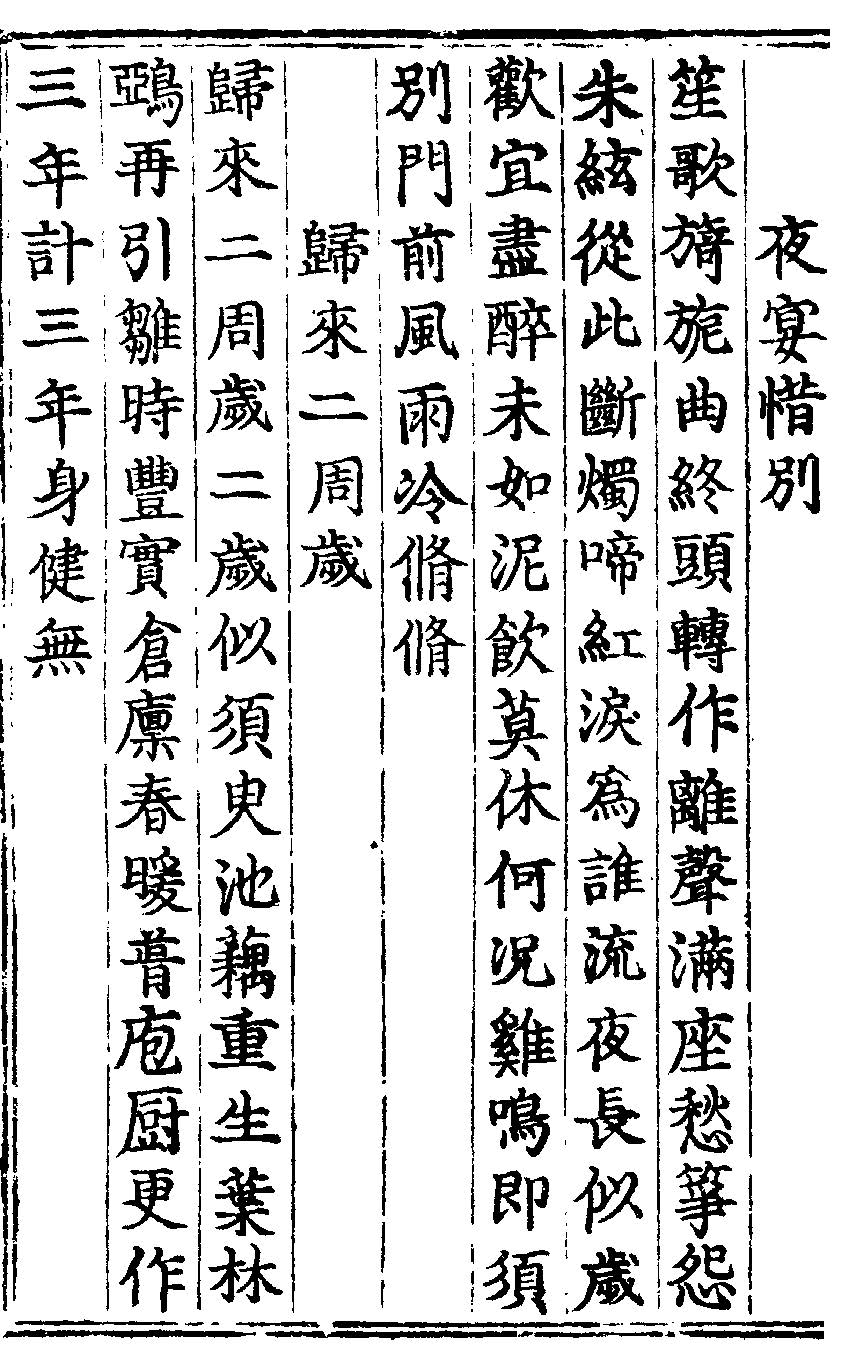 夜宴惜別
笙歌旖旎曲終頭轉作離聲滿座愁箏怨
朱絃從此斷燭啼紅淚爲誰流夜長似歲
歡宜盡醉未如泥飲莫休何况雞鳴即須
別門前風雨冷脩脩
歸來二周歲
歸來二周歲二歲似須臾池藕重生葉林
鵶再引雛時豐實倉廪春暖葺庖厨更作
三年計三年身健無